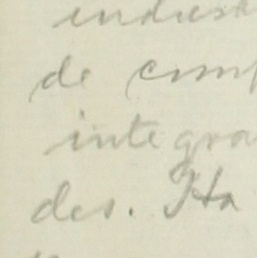 indus
de comp
integra
des. Ha